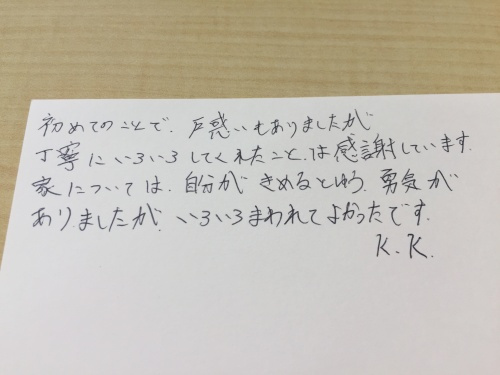 初めてのことで、戸惑いもありましたが
丁寧にいろいろしてくれたこと、は感謝しています。
家については、自分がきめるとゆう、勇気が
ありましたが、いろいろまわれてよかったです。
K.K.